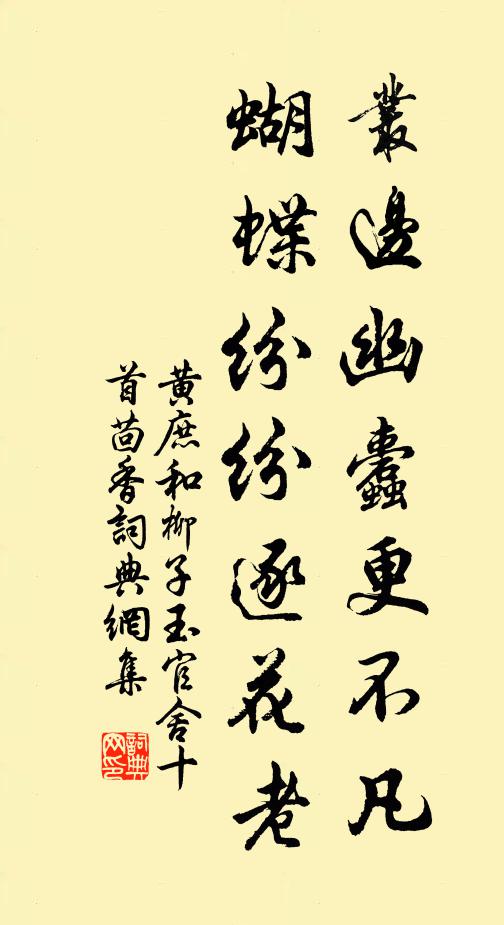 叢邊幽蠹更不凡
蝴蝶紛紛逐花老
黃庶和柳子玉官舍十
首茴香詞典網集
詞典
网印